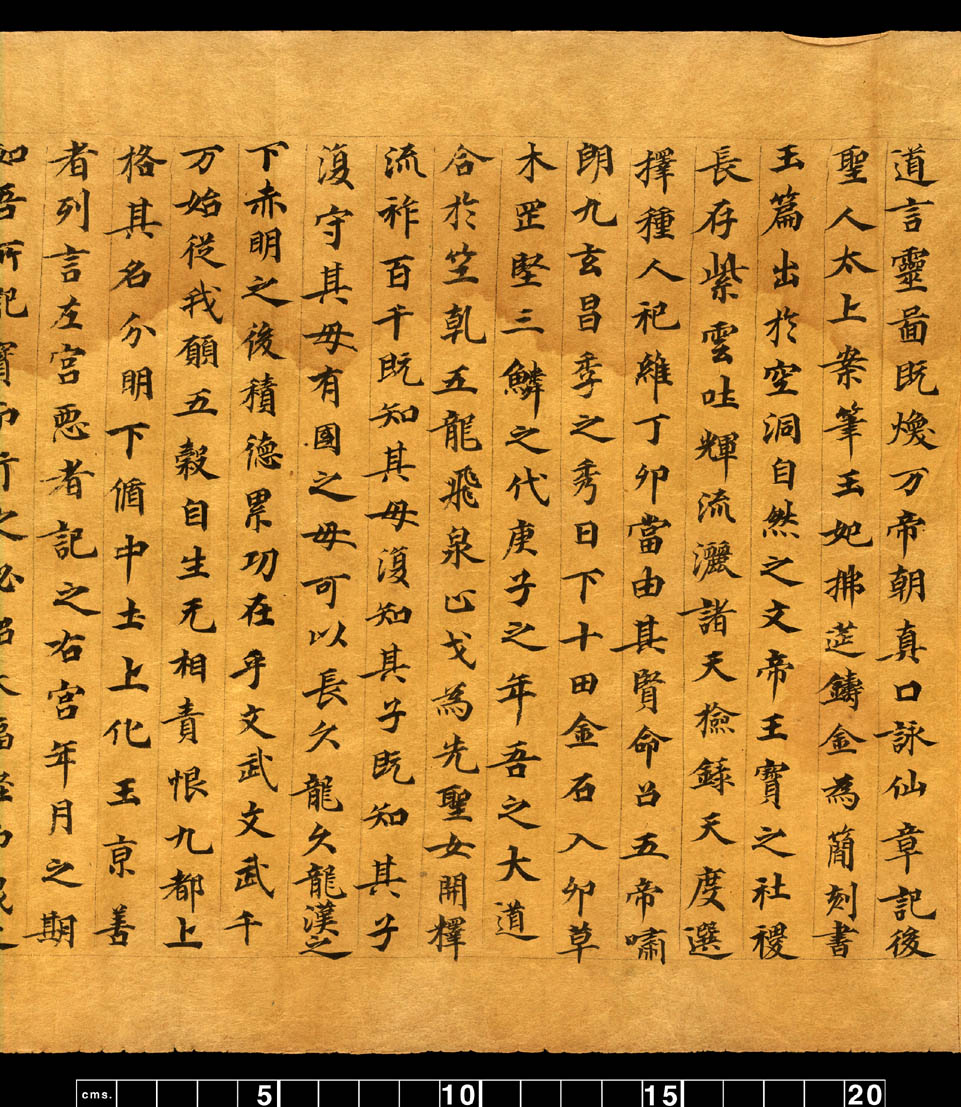 道言靈啚既煥万帝朝真口詠仙章記後
聖人太上案筆玉妃拂莚鑄金為簡刻書
玉篇出於空洞自然之文帝王寶之社稷
長存紫雲吐輝流灑諸天撿錄天度選
擇種人祀維丁卯當由其賢命召五帝嘯
朗九玄昌季之秀日下十田金石入卯草
木罡堅三鱗之代庚子之年吾之大道
合於笁乹五龍飛泉止戈為先聖女開擇
流祚百千既知其母復知其子既知其子
復守其母有國之母可以長久龍久龍漢之
下赤明之後積德累功在乎文武文武千
万始從我願五穀自生无相責恨九都上
格其名分明下循中士上化玉京善
者列言左宮惡者記之右宮年月之期
如吾所記寶而行之